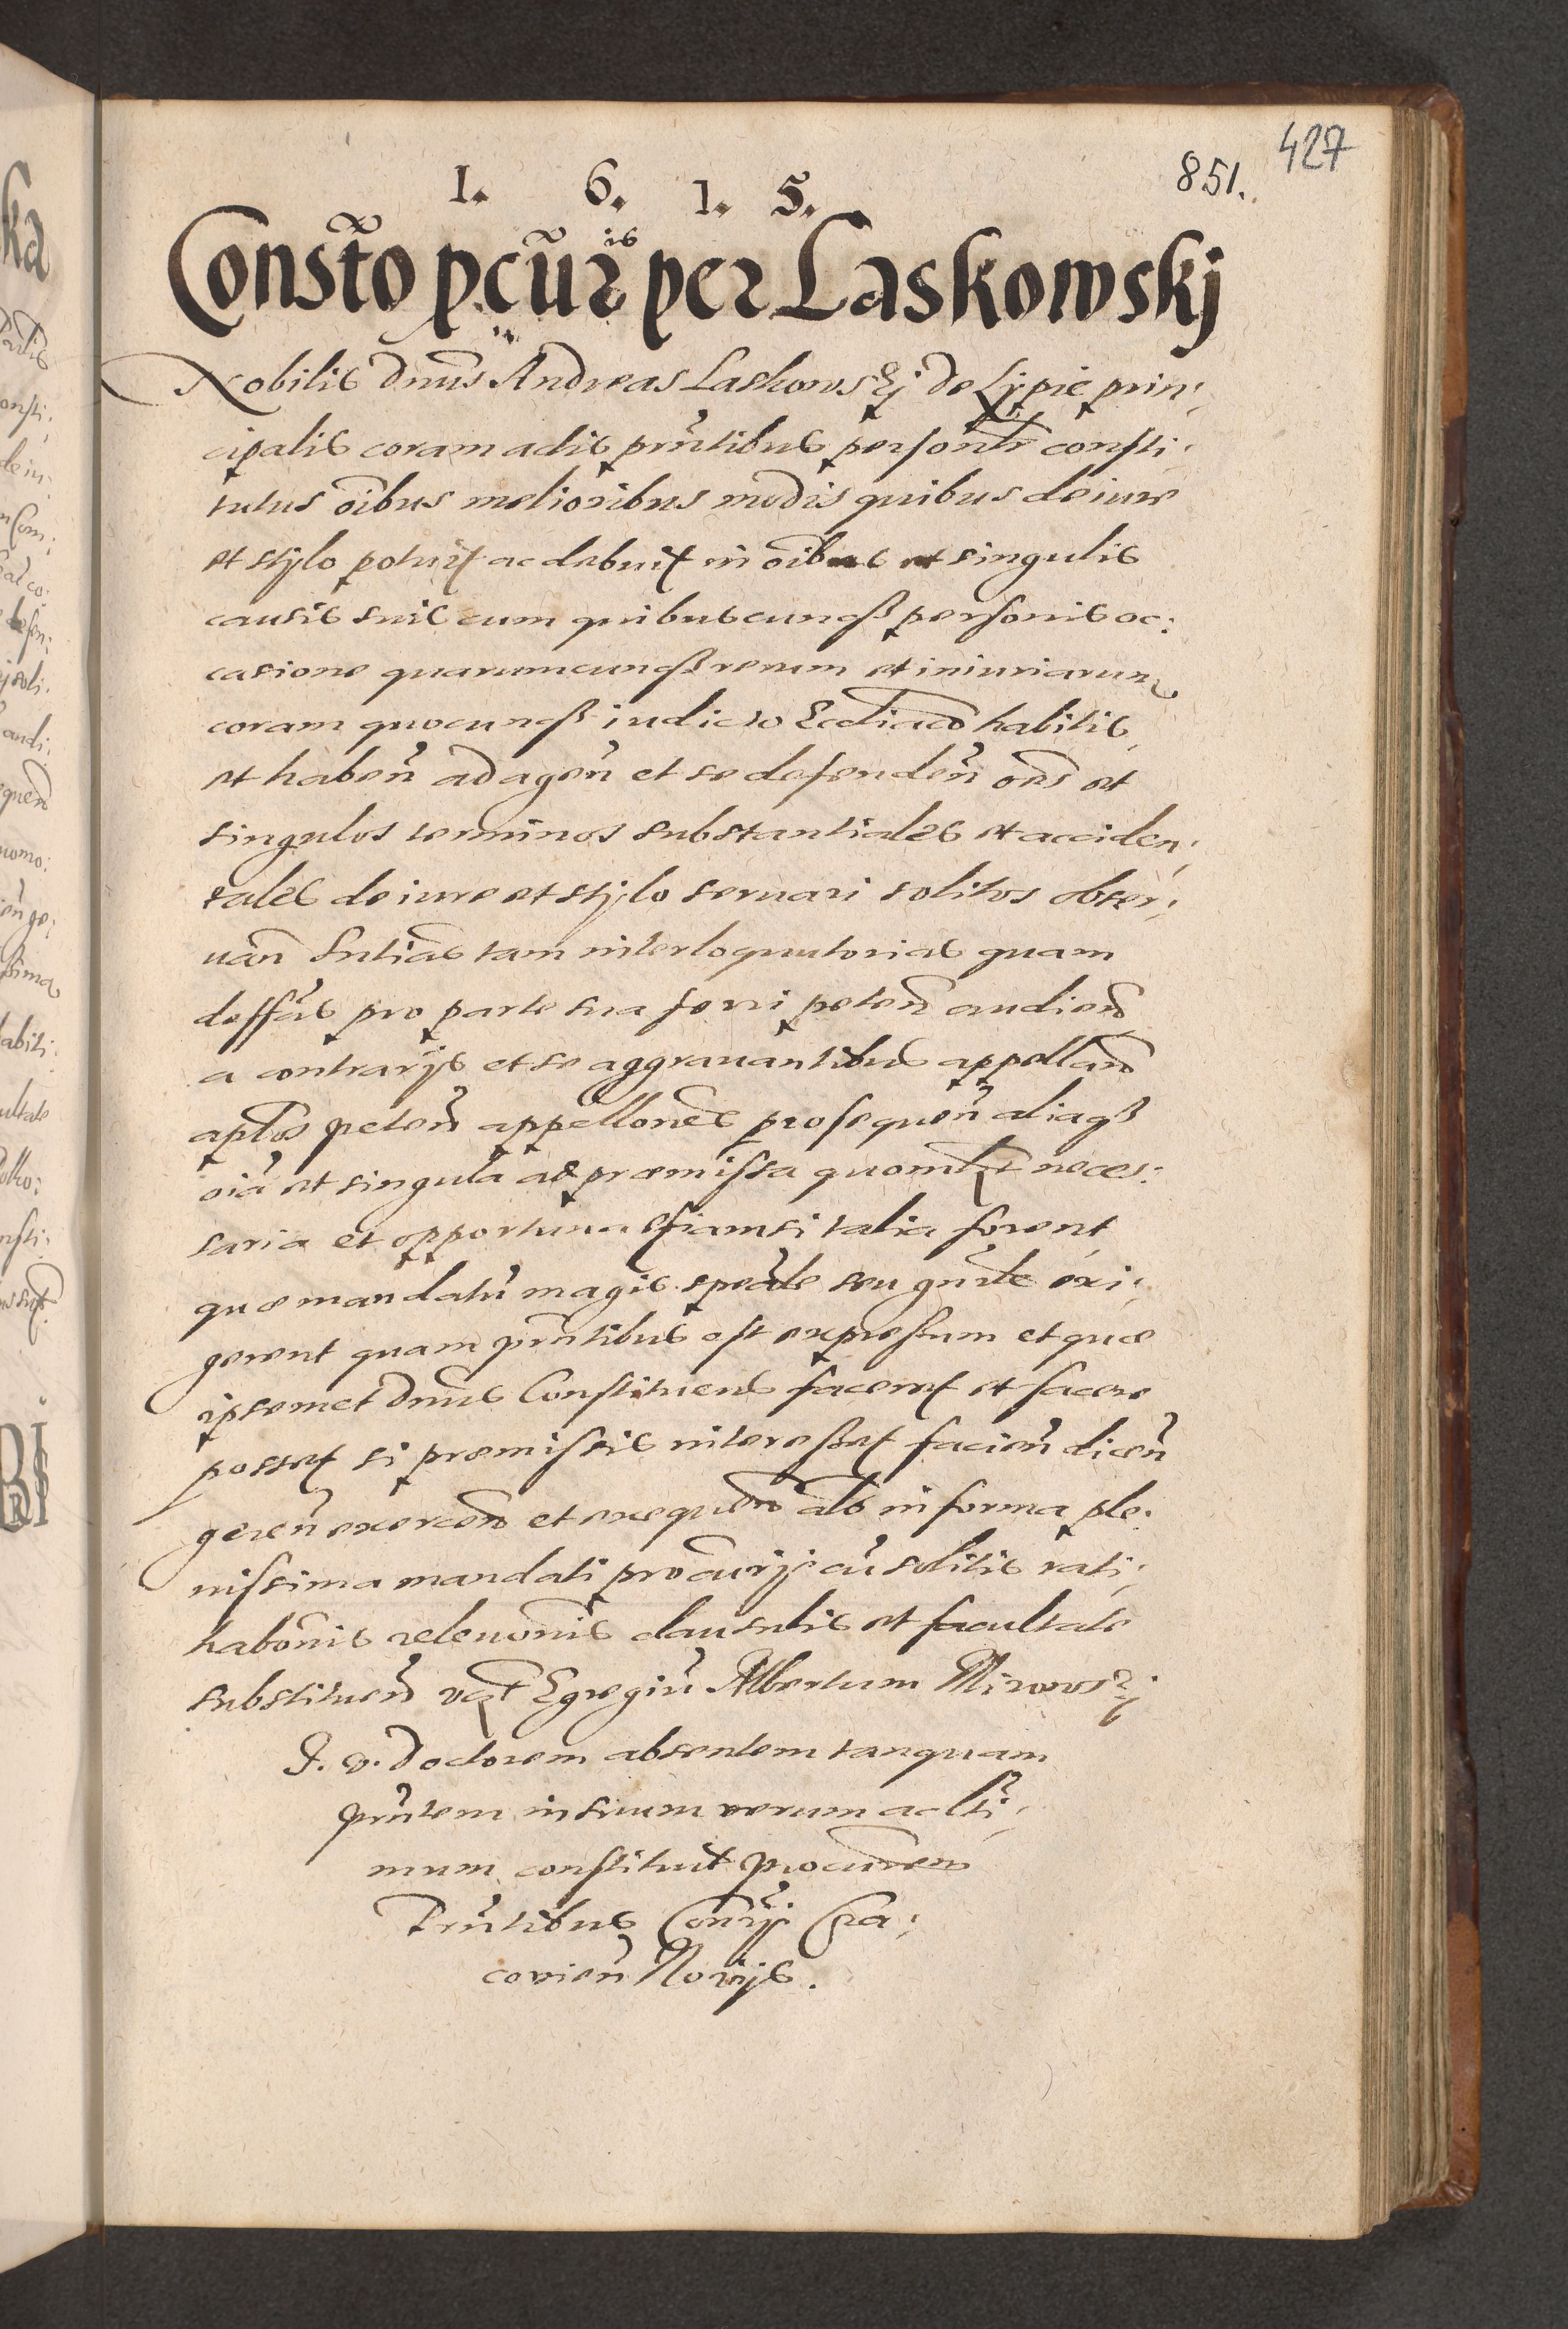 427
851.
1. 6. 1. 5.
Consto pcur̃is per Laskowskj
Nobilis Dnus Andreas Laskowskj de Lypie prin;
cipalis coram actis prntibus personlr consti;
tutus oibus melioribus modis quibus de iure
et stylo potuit ac debuit in oibus et singulis
causis suis cum quibuscunqß personis oc:
casione quarumcunqß rerum et iniuriarum
coram quocunqß iudicio Eccliaco habitis
et haben ad agen et se defenden oes et
singulos terminos substantiales et acciden;
tales de iure et stylo seruari solitos obser;
uan Sntias tam interloquutorias quam
deffas pro parte sua ferri peten audien
a contrarijs et se aggrauantibus appellan
aplos peten appellones prosequen aliaqß
oia et singula ad præmissa quomlt neces:
saria et opportuna etiamsi talia forent
quæ mandatu magis speale seu gnrale exi;
gerent quam prntibus est expressum et quæ
ipsemet Dnus Constituens faceret et facere
posset si præmissis interesset facien dicen
geren exercen et exequen als in forma ple:
nissima mandati procurijs cu solitis rati;
habonis releuonis clausulis et facultate
substituen vęt Egregiu Albertum Mirowskj
J. v. Doctorem absentem tanquam
prntem in suum verum ac lti;
mum constituit procurem
Prntibus Conrij Cra;
couien Norijs.